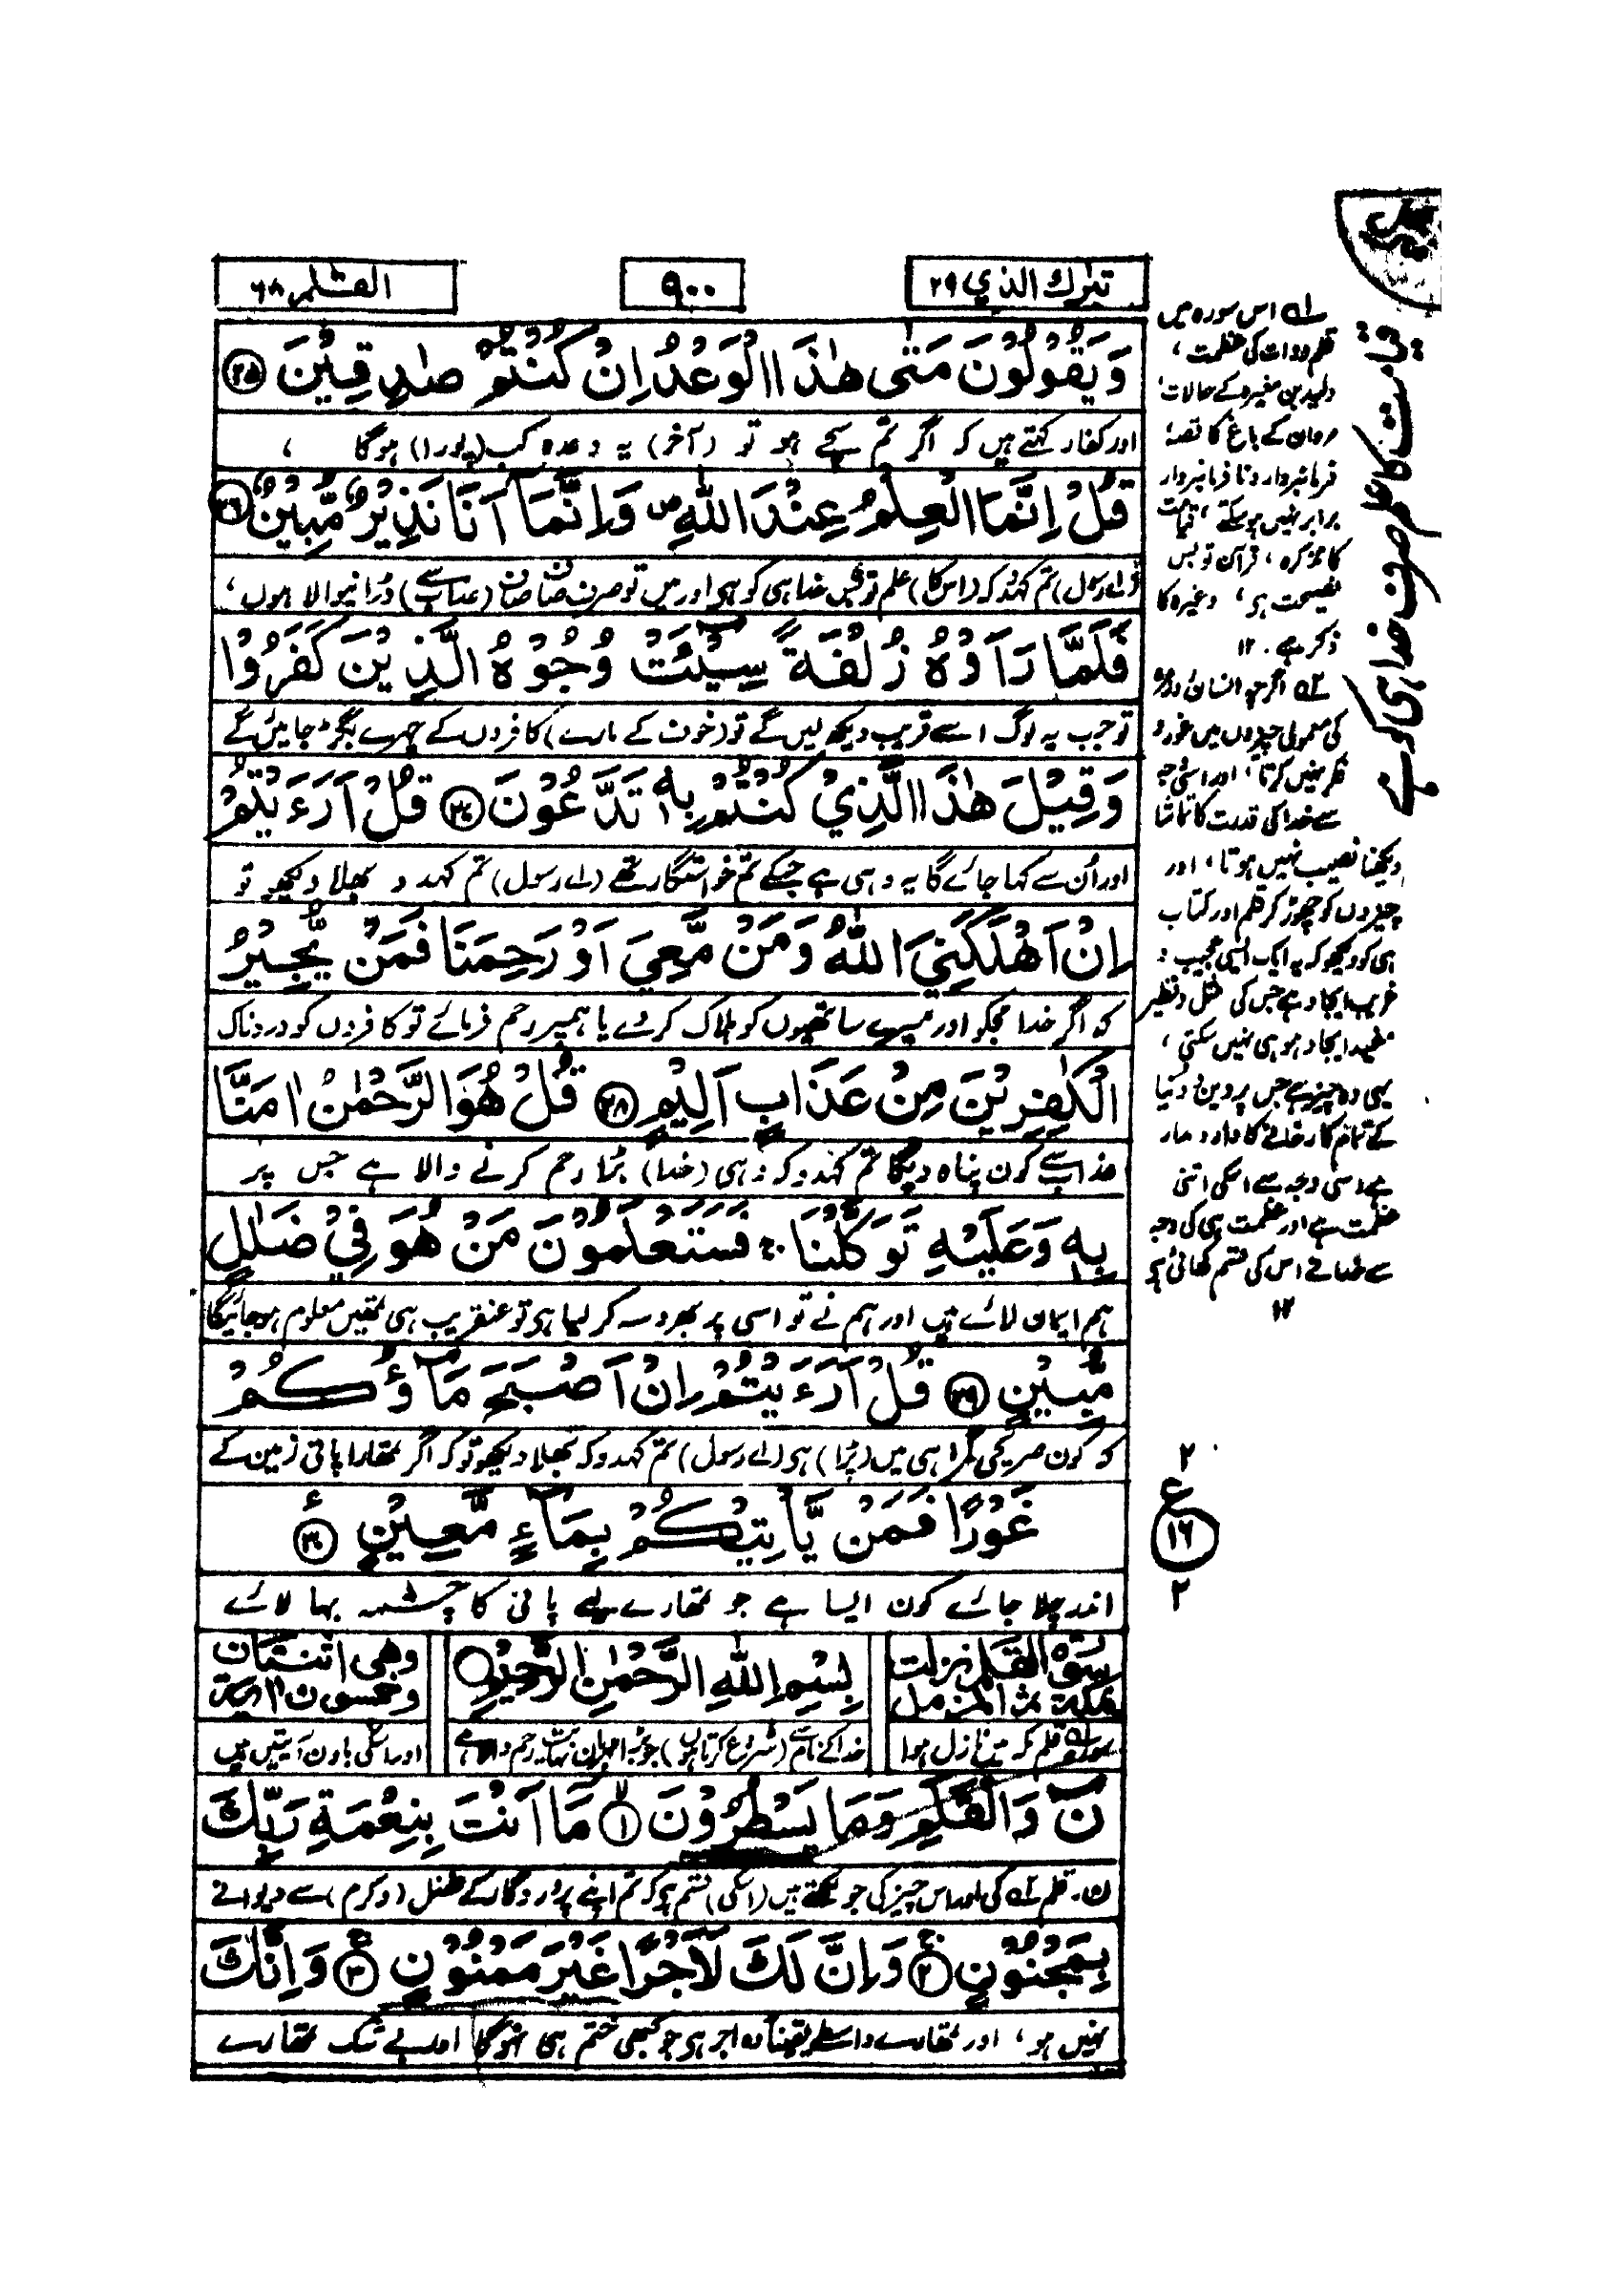 تبٰرك الذي ٢٩
٩٠٠
القلم ٦٨
وَيَقُوْلُوْنَ مَتٰى هٰذَا الْوَعْدُ اِنْ كُنْتُمْ صٰدِقِيْنَ ٢٥
اور کفار کہتے ہیں کہ اگر تم سچے ہو تو (آخر) یہ وعدہ کب (پورا) ہوگا ،
قُلْ اِنَّمَا الْعِلْمُ عِنْدَ اللّٰهِ ۖ وَاِنَّمَآ اَنَا نَذِيْرٌ مُّبِيْنٌ ٢٦
(اے رسول) تم کہدو کہ (اس کا) علم تو بس خدا ہی کو ہی اور میں تو صرف صاف صاف (عذاب سے) ڈرانیوالا ہوں ،
فَلَمَّا رَاَوْهُ زُلْفَةً سِيْٓئَتْ وُجُوْهُ الَّذِيْنَ كَفَرُوْا
تو جب یہ لوگ اسے قریب دیکھ لیں گے تو (خوف کے مارے) کافروں کے چہرے بگڑ جائیں گے
وَقِيْلَ هٰذَا الَّذِيْ كُنْتُمْ بِهٖ تَدَّعُوْنَ ٢٧ قُلْ اَرَءَيْتُمْ
اور اُن سے کہا جائے گا یہ وہی ہے جسکے تم خواستگار تھے (اے رسول) تم کہدو بھلا دیکھو تو
اِنْ اَهْلَكَنِيَ اللّٰهُ وَمَنْ مَّعِيَ اَوْ رَحِمَنَا فَمَنْ يُّجِيْرُ
کہ اگر خدا مجکو اور میرے ساتھیوں کو ہلاک کر دے یا ہمپر رحم فرمائے تو کافروں کو دردناک
الْكٰفِرِيْنَ مِنْ عَذَابٍ اَلِيْمٍ ٢٨ قُلْ هُوَ الرَّحْمٰنُ اٰمَنَّا
عذاب سے کون پناہ دیگا تم کہدو کہ وہی (خدا) بڑا رحم کرنے والا ہے جس پر
بِهٖ وَعَلَيْهِ تَوَكَّلْنَا ۚ فَسَتَعْلَمُوْنَ مَنْ هُوَ فِيْ ضَلٰلٍ
ہم ایمان لائے ہیں اور ہم نے تو اسی پر بھروسہ کر لیا ہی تو عنقریب ہی تمھیں معلوم ہو جائیگا
مُّبِيْنٍ ٢٩ قُلْ اَرَءَيْتُمْ اِنْ اَصْبَحَ مَآؤُكُمْ
کہ کون صریحی گمراہی میں (پڑا) ہی (اے رسول) تم کہدو کہ بھلا دیکھو تو کہ اگر تمھارا پانی زمین کے
غَوْرًا فَمَنْ يَّاْتِيْكُمْ بِمَآءٍ مَّعِيْنٍ ٣٠
اندر چلا جائے کون ایسا ہے جو تمھارے لیے پانی کا چشمہ بہا لائے
سورة القلم نزلت
بمكة بعد المزمل
بِسْمِ اللّٰهِ الرَّحْمٰنِ الرَّحِيْمِ
وهي اثنتان
وخمسون اٰية
سورہ قلم مکہ میں نازل ہوا
خدا کے نام سے (شروع کرتا ہوں) جو بڑا مہربان نہایت رحم والا ہے
اور اسکی باون آیتیں ہیں
نٓ وَالْقَلَمِ وَمَا يَسْطُرُوْنَ ١ مَآ اَنْتَ بِنِعْمَةِ رَبِّكَ
ن۔ قلم کی اور اس چیز کی جو لکھتے ہیں (اسکی) قسم ہو کہ تم اپنے پروردگار کے فضل (و کرم) سے دیوانے
بِمَجْنُوْنٍ ٢ وَاِنَّ لَكَ لَاَجْرًا غَيْرَ مَمْنُوْنٍ ٣ وَاِنَّكَ
نہیں ہو ، اور تمھارے واسطے یقیناً وہ اجر ہی جو کبھی ختم ہی نہوگا اور بے شک تمھارے
قیامت کا علم صرف خدا ہی کو ہے
اس سورہ میں
قلم و دوات کی عظمت ،
ولید بن مغیرہ کے حالات
مروان کے باغ کا قصہ
فرمانبردار و نا فرمانبردار
برابر نہیں ہو سکتے ، قیامت
کا تذکرہ ، قرآن تو بس
نصیحت ہو ، وغیرہ کا
ذکر ہے ۔ ١٢
اگرچہ انسان روزمرہ
کی معمولی چیزوں میں غور و
فکر نہیں کرتا ، اور اسی وجہ
سے خدا کی قدرت کا تماشا
دیکھنا نصیب نہیں ہوتا ، اور
چیزوں کو چھوڑ کر قلم اور کتاب
ہی کو دیکھو کہ یہ ایک ایسی عجیب و
غریب ایجاد ہے جس کی مثل و نظیر
مفید ایجاد ہو ہی نہیں سکتی ،
یہی وہ چیز ہے جس پر دین و دنیا
کے تمام کارخانے کا دارومدار
ہے اسی وجہ سے اسکی اتنی
عظمت ہے اور عظمت ہی کی وجہ
سے خدا نے اس کی قسم کھائی ہو
١٢
٢
ع
١٦
٢